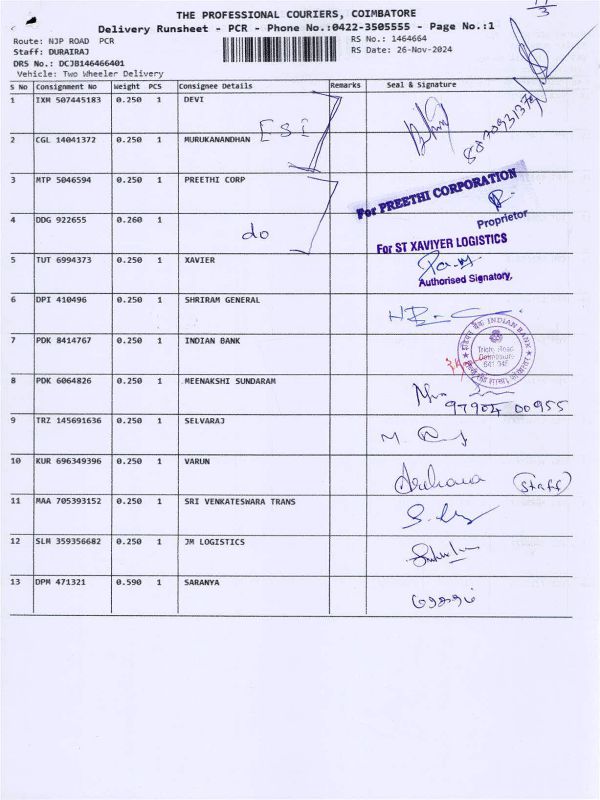 11/3
THE PROFESSIONAL COURIERS, COIMBATORE
Delivery Runsheet - PCR - Phone No.:0422-3505555 - Page No.:1
Route: NJP ROAD PCR RS No.: 1464664
Staff: DURAIRAJ RS Date: 26-Nov-2024
DRS No.: DCJB146466401
Vehicle: Two Wheeler Delivery
S No Consignment No Weight PCS Consignee Details Remarks Seal & Signature
1 IXM 507445183 0.250 1 DEVI
ESI
2 CGL 14041372 0.250 1 MURUKANANDHAN
3 MTP 5046594 0.250 1 PREETHI CORP For PREETHI CORPORATION
Proprietor
4 DDG 922655 0.260 1 do
For ST XAVIYER LOGISTICS
5 TUT 6994373 0.250 1 XAVIER
Authorised Signatory,
6 DPI 410496 0.250 1 SHRIRAM GENERAL
7 PDK 8414767 0.250 1 INDIAN BANK INDIAN BANK
Trichy Road
Coimbatore
8 PDK 6064826 0.250 1 MEENAKSHI SUNDARAM
97904 00955
9 TRZ 145691636 0.250 1 SELVARAJ
10 KUR 696349396 0.250 1 VARUN (Staff)
11 MAA 705393152 0.250 1 SRI VENKATESWARA TRANS
12 SLM 359356682 0.250 1 JM LOGISTICS
13 DPM 471321 0.590 1 SARANYA